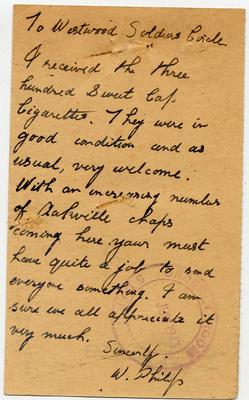 To Westwood Soldiers Circle.
I received the three
hundred Sweet Cap.
Cigarettes. They were in
good condition and as
usual, very welcome.
With an increasing number
of Oakville chaps
coming here yours must
have quite a job to send
everyone something. I am
sure we all appreciate it
very much.
Sincerly.
W. Philip